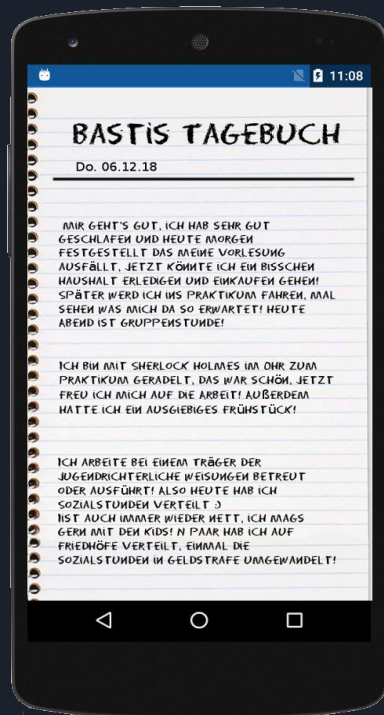 11:08
BASTIS TAGEBUCH
Do. 06.12.18
MIR GEHT'S GUT, ICH HAB SEHR GUT
GESCHLAFEN UND HEUTE MORGEN
FESTGESTELLT DAS MEINE VORLESUNG
AUSFÄLLT, JETZT KÖNNTE ICH EIN BISSCHEN
HAUSHALT ERLEDIGEN UND EINKAUFEN GEHEN!
SPÄTER WERD ICH INS PRAKTIKUM FAHREN, MAL
SEHEN WAS MICH DA SO ERWARTET! HEUTE
ABEND IST GRUPPENSTUNDE!
ICH BIN MIT SHERLOCK HOLMES IM OHR ZUM
PRAKTIKUM GERADELT, DAS WAR SCHÖN, JETZT
FREU ICH MICH AUF DIE ARBEIT! AUßERDEM
HATTE ICH EIN AUSGIEBIGES FRÜHSTÜCK!
ICH ARBEITE BEI EINEM TRÄGER DER
JUGENDRICHTERLICHE WEISUNGEN BETREUT
ODER AUSFÜHRT! ALSO HEUTE HAB ICH
SOZIALSTUNDEN VERTEILT :)
IIST AUCH IMMER WIEDER NETT, ICH MAGS
GERN MIT DEN KIDS! N PAAR HAB ICH AUF
FRIEDHÖFE VERTEILT, EINMAL DIE
SOZIALSTUNDEN IN GELDSTRAFE UMGEWANDELT!